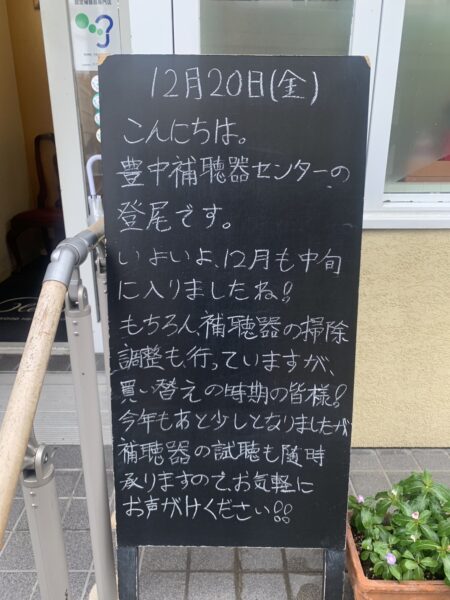 認定補聴器専門店
12月20日(金)
こんにちは。
豊中補聴器センターの
登尾です。
いよいよ、12月も中旬
に入りましたね!
もちろん、補聴器の掃除
調整も行っていますが、
買い替えの時期の皆様!
今年もあと少しとなりましたが
補聴器の試聴も随時
承りますのでお気軽に
お声がけください!!